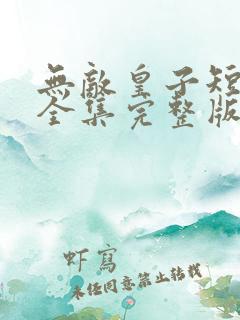 無敵皇子短
全集完整版
虾寫
未经同意禁止转载